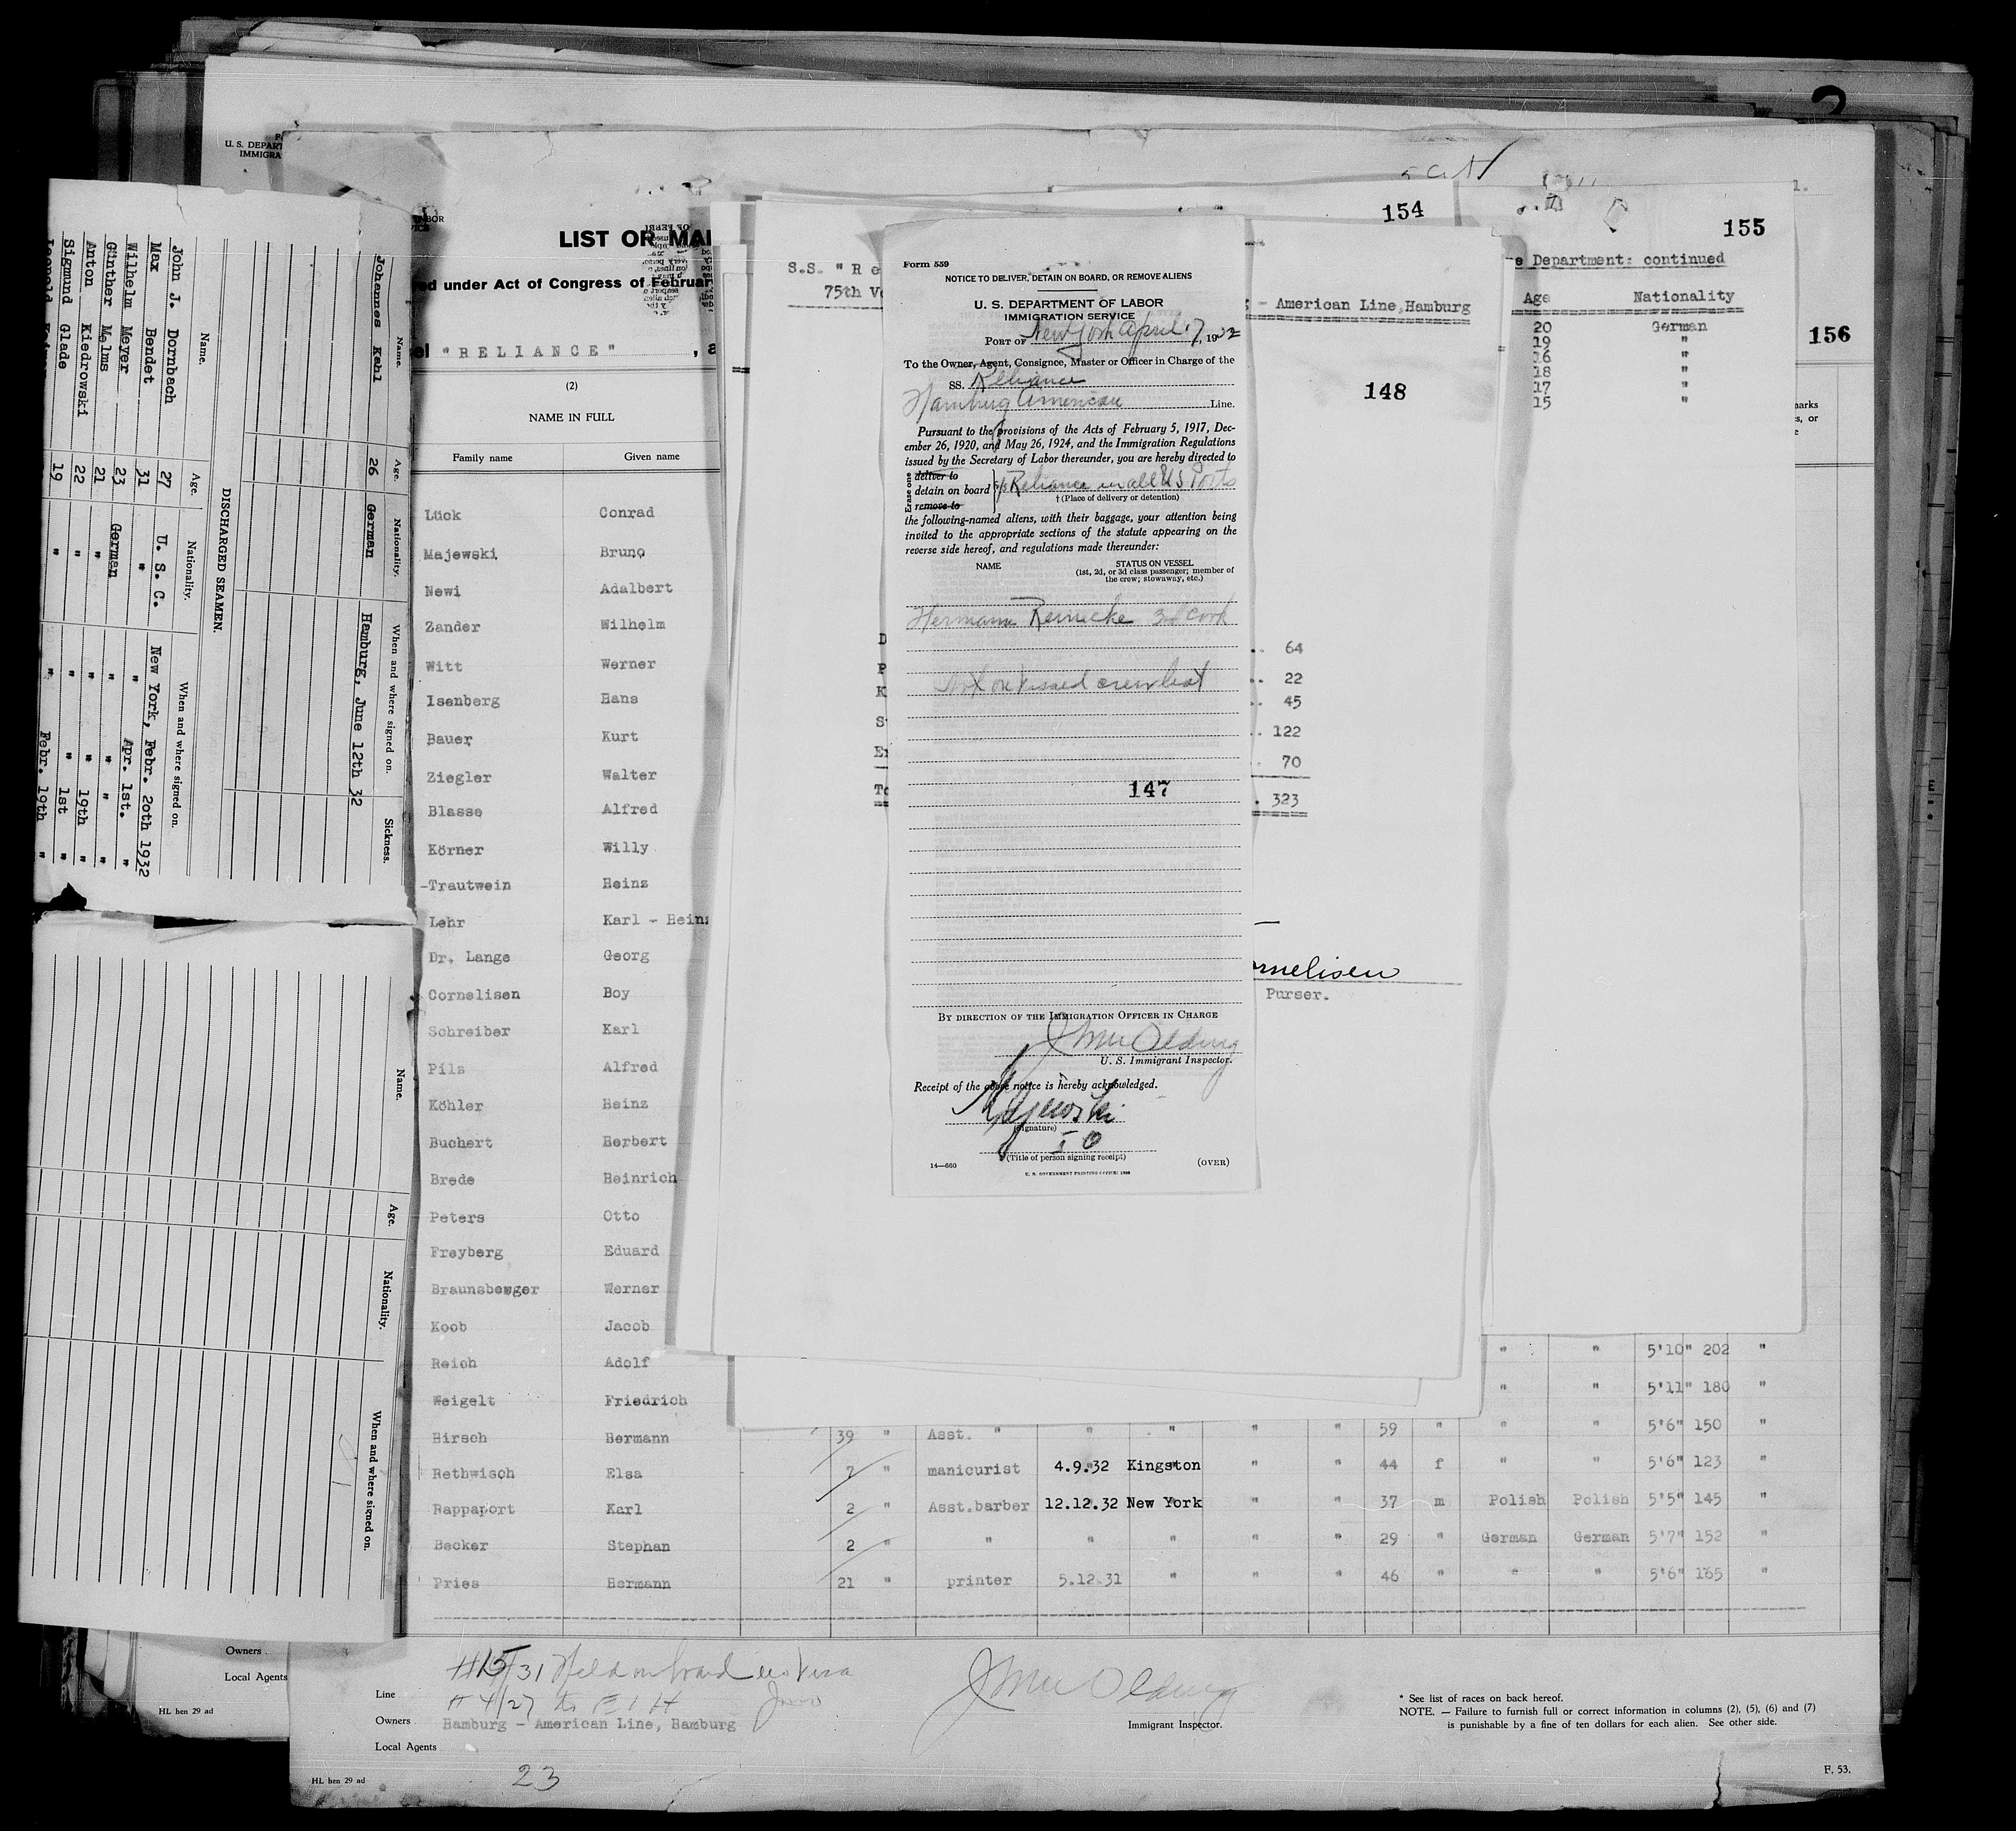 154
155
156
148
U. S. DEPART
IMMIGRA
LIST OR MA
ed under Act of Congress of Februar
el "RELIANCE" , a
(2)
NAME IN FULL
Family name Given name
Lück Conrad
Majewski Bruno
Newi Adalbert
Zander Wilhelm
Witt Werner
Isenberg Hans
Bauer Kurt
Ziegler Walter
Blasse Alfred
Körner Willy
-Trautwein Heinz
Lehr Karl - Hein
Dr. Lange Georg
Cornelisen Boy
Schreiber Karl
Pilz Alfred
Köhler Heinz
Buchert Herbert
Brede Heinrich
Peters Otto
Freyberg Eduard
Braunsberger Werner
Koob Jacob
Reich Adolf
Weigelt Friedrich
" " 5'10" 202 "
" " 5'11" 180 "
Hirsch Hermann 39 " Asst. " " " " " 59 " " " 5'6" 150 "
Rethwisch Elsa 7 " manicurist 4.9.32 Kingston " " 44 f " " 5'6" 123 "
Rappaport Karl 2 " Asst.barber 12.12.32 New York " " 37 m Polish Polish 5'5" 145 "
Becker Stephan 2 " " " " " " 29 " German German 5'7" 152 "
Pries Hermann 21 " printer 5.12.31 " " " 46 " " " 5'6" 165 "
Line
Owners Hamburg - American Line, Hamburg
Local Agents
23
HL hen 29 ad
JMM Olding
Immigrant Inspector.
* See list of races on back hereof.
NOTE. — Failure to furnish full or correct information in columns (2), (5), (6) and (7)
is punishable by a fine of ten dollars for each alien. See other side.
F. 53.
Owners
Local Agents
HL hen 29 ad
Name. Age. Nationality. When and where signed on. Sickness.
Johannes Kehl 26 German Hamburg, June 12th 32
DISCHARGED SEAMEN.
Name. Age. Nationality. When and where signed on.
John J. Dornbach 27 U. S. C. New York, Febr. 20th 1932
Max Bendet 31 " " Apr. 1st. "
Wilhelm Meyer 23 German " " "
Günther Melms 21 " " " "
Anton Kiedrowski 22 " " " 19th "
Sigmund Glade 19 " " " 1st "
Febr. 19th "
Name. Age. Nationality. When and where signed on.
S.S. "Re
75th V
- American Line,Hamburg
64
22
45
122
70
323
Purser.
e Department: continued
Age Nationality
20 German
19 "
16 "
18 "
17 "
15 "
Form 559
NOTICE TO DELIVER, DETAIN ON BOARD, OR REMOVE ALIENS
U. S. DEPARTMENT OF LABOR
IMMIGRATION SERVICE
PORT OF New York April 17, 1932
To the Owner, Agent, Consignee, Master or Officer in Charge of the
SS. Reliance
Hamburg American Line.
Pursuant to the provisions of the Acts of February 5, 1917, Dec-
ember 26, 1920, and May 26, 1924, and the Immigration Regulations
issued by the Secretary of Labor thereunder, you are hereby directed to
Erase one
deliver to
detain on board S/S Reliance in all U S Ports
remove to
† (Place of delivery or detention)
the following-named aliens, with their baggage, your attention being
invited to the appropriate sections of the statute appearing on the
reverse side hereof, and regulations made thereunder:
NAME STATUS ON VESSEL
(1st, 2d, or 3d class passenger; member of
the crew; stowaway, etc.)
Hermann Reinicke 3rd Cook
Not on visaed crew list
147
BY DIRECTION OF THE IMMIGRATION OFFICER IN CHARGE
JMM Olding
U. S. Immigrant Inspector.
Receipt of the above notice is hereby acknowledged.
Majewski
(Signature)
I O
(Title of person signing receipt)
14—660 (OVER)
U. S. GOVERNMENT PRINTING OFFICE: 1930